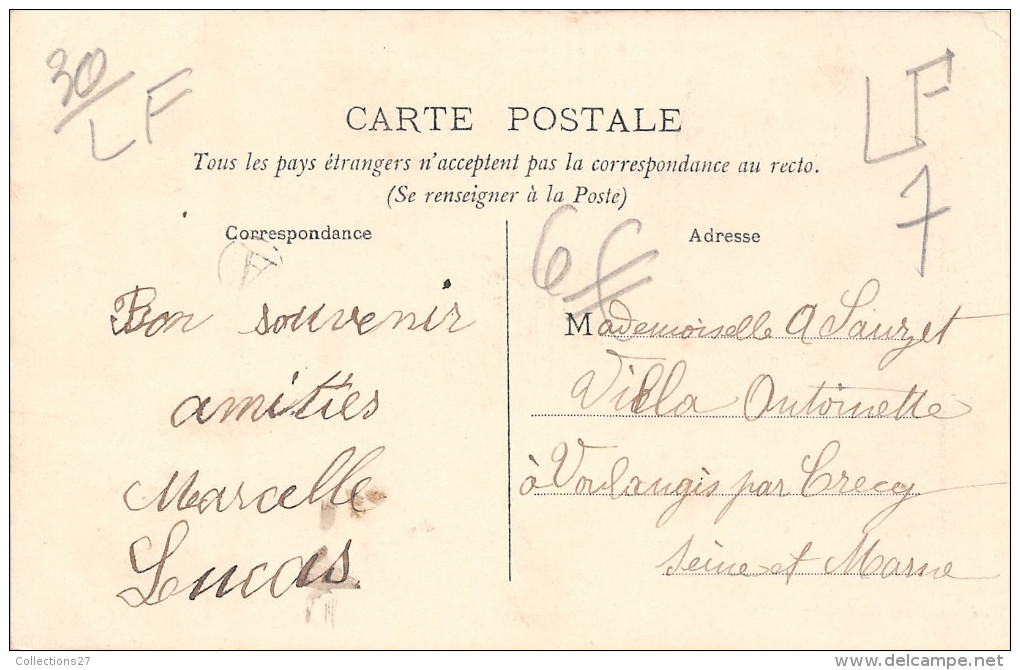 30
LF
LF
7
CARTE POSTALE
Tous les pays étrangers n'acceptent pas la correspondance au recto.
(Se renseigner à la Poste)
Correspondance
A
Bon souvenir
amitiés
Marcelle
Lucas
Adresse
Mademoiselle A Sauzet
Villa Antoinette
à Voulangis par Crecy
Seine et Marne
Collections27
www.delcampe.net